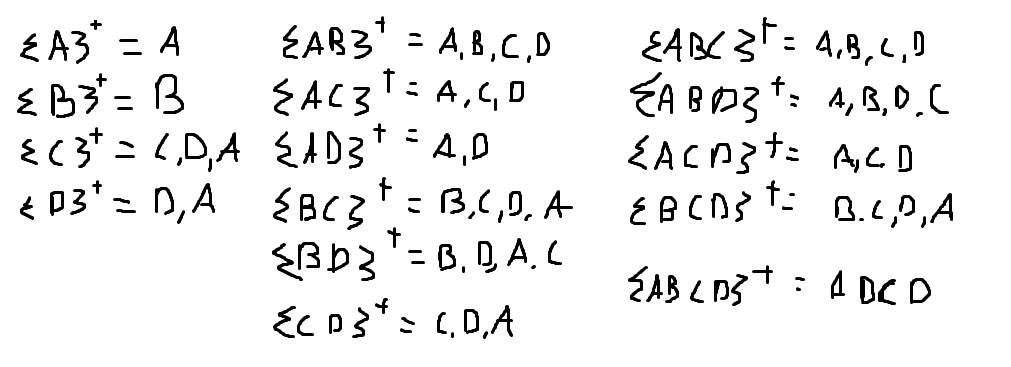 {A}⁺ = A
{B}⁺ = B
{C}⁺ = C,D,A
{D}⁺ = D,A
{AB}⁺ = A,B,C,D
{AC}⁺ = A,C,D
{AD}⁺ = A,D
{BC}⁺ = B,C,D.A
{BD}⁺ = B.D,A.C
{CD}⁺ = C,D,A
{ABC}⁺ = A,B,C,D
{ABD}⁺ = A,B,D.C
{ACD}⁺ = A,C D
{BCD}⁺ = B.C,D,A
{ABCD}⁺ = A DCD